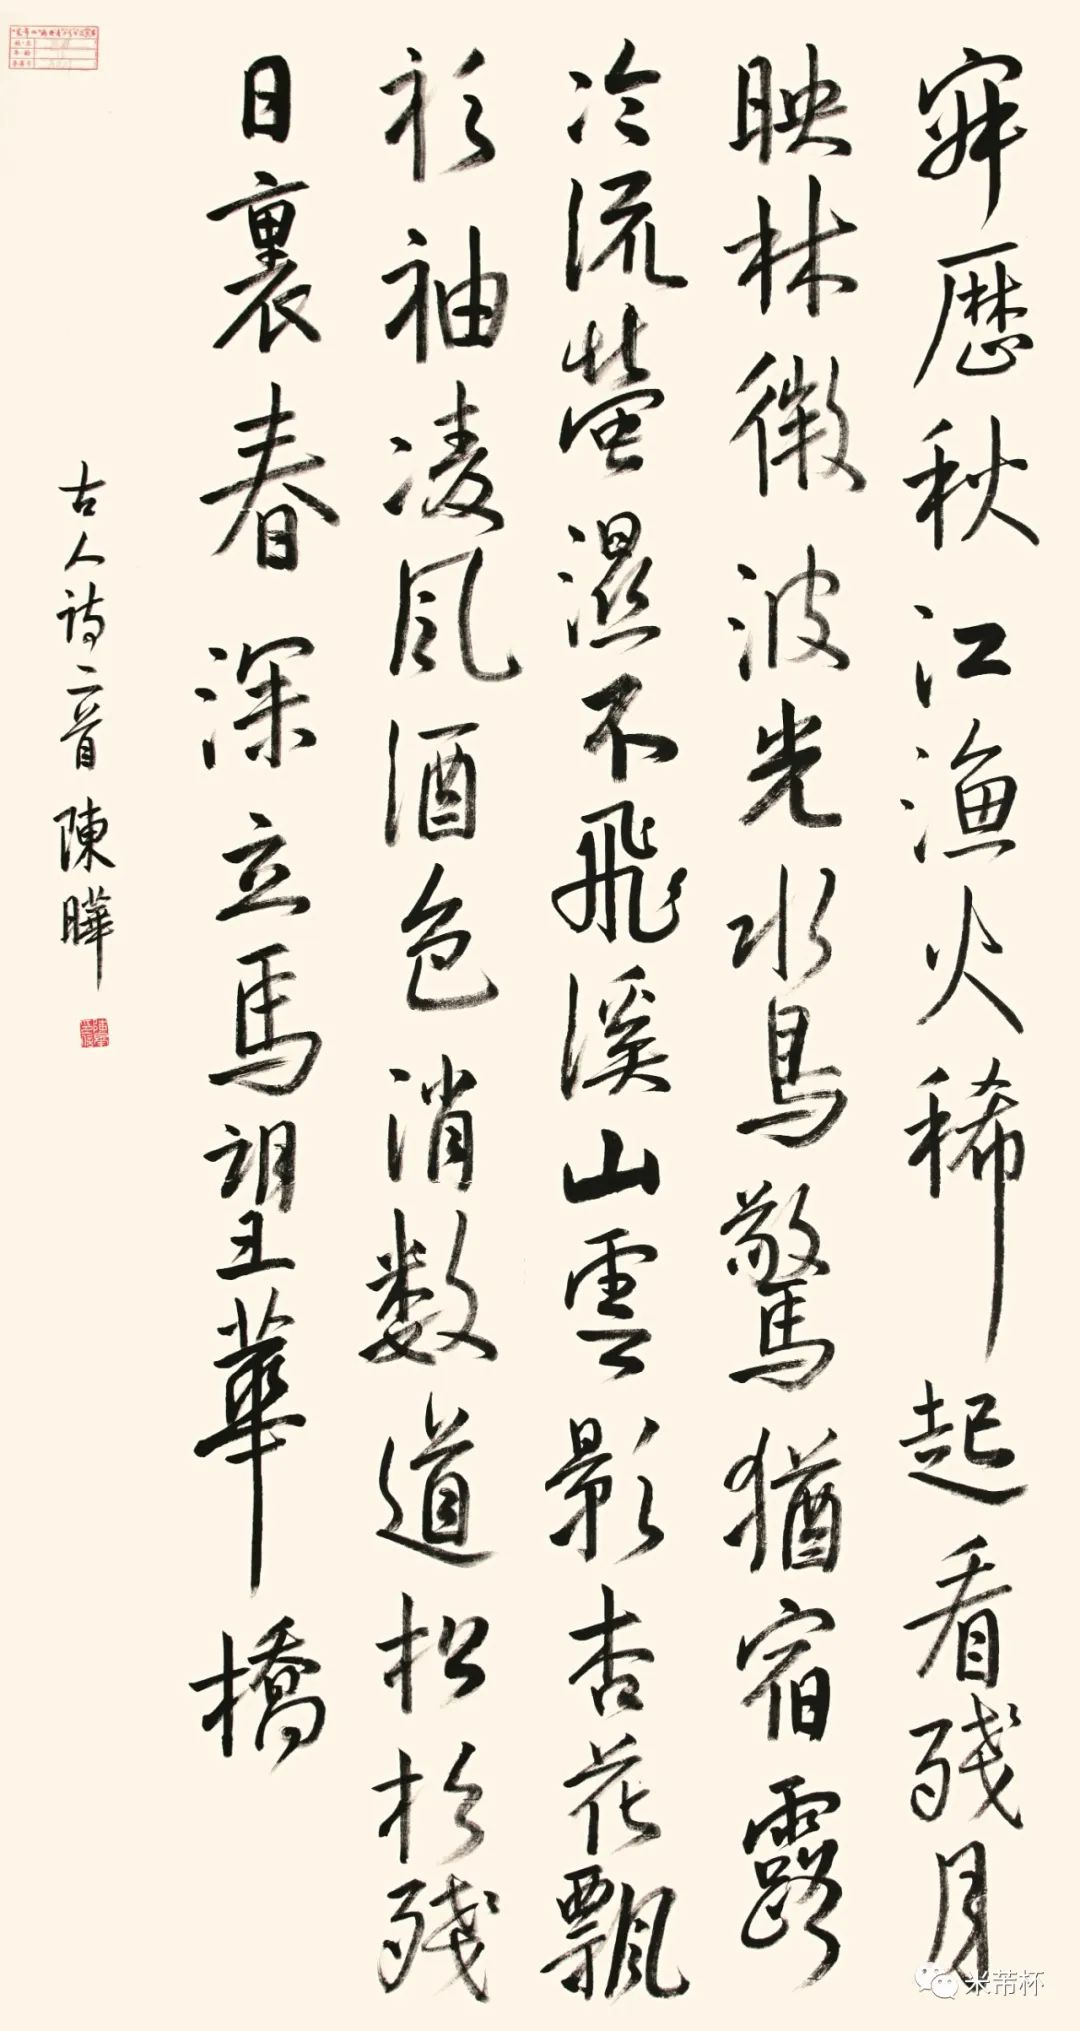 寂歷秋江漁火稀起看殘月
映林微波光水鳥驚猶宿露
冷流螢濕不飛溪山雲影杏花飄
衫袖凌風酒色消数道松杉殘
日裏春深立馬望華橋
古人詩二首 陳曄
米芾杯